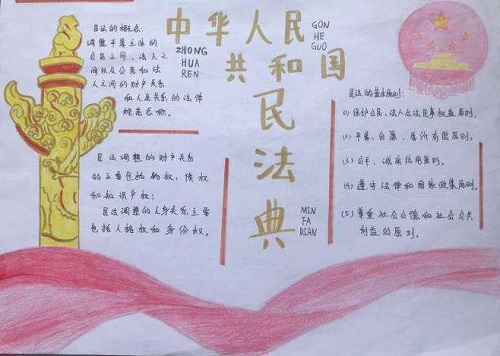 中华人民
共和国
民法典
ZHONG
HUA
REN
GON
HE
GUO
MIN
FA
DIAN
民法的概念:
调整平等主体的
自然人之间、法人之
间以及公民和法
人之间的财产关系
和人身关系的法律
规范总称。
民法调整的财产关系
的主要包括物权,债权
和知识产权;
民法调整的人身关系主要
包括人格权和身份权。
民法的基本原则:
(1) 保护公民、法人合法民事权益原则.
(2) 平等、自愿、等价有偿原则.
(3) 公平、诚实信用原则.
(4) 遵守法律和国家政策原则.
(5) 尊重社会公德和社会公共
利益的原则.